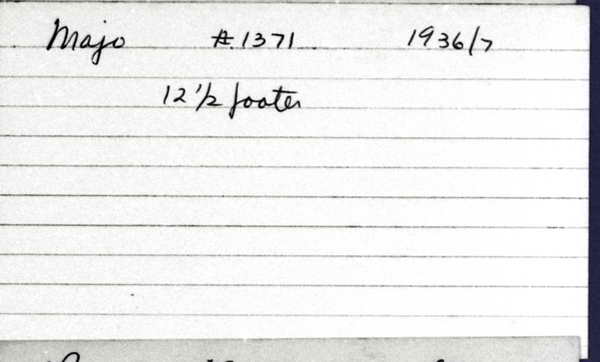 Majo #1371 1936/7
12 1/2 footer